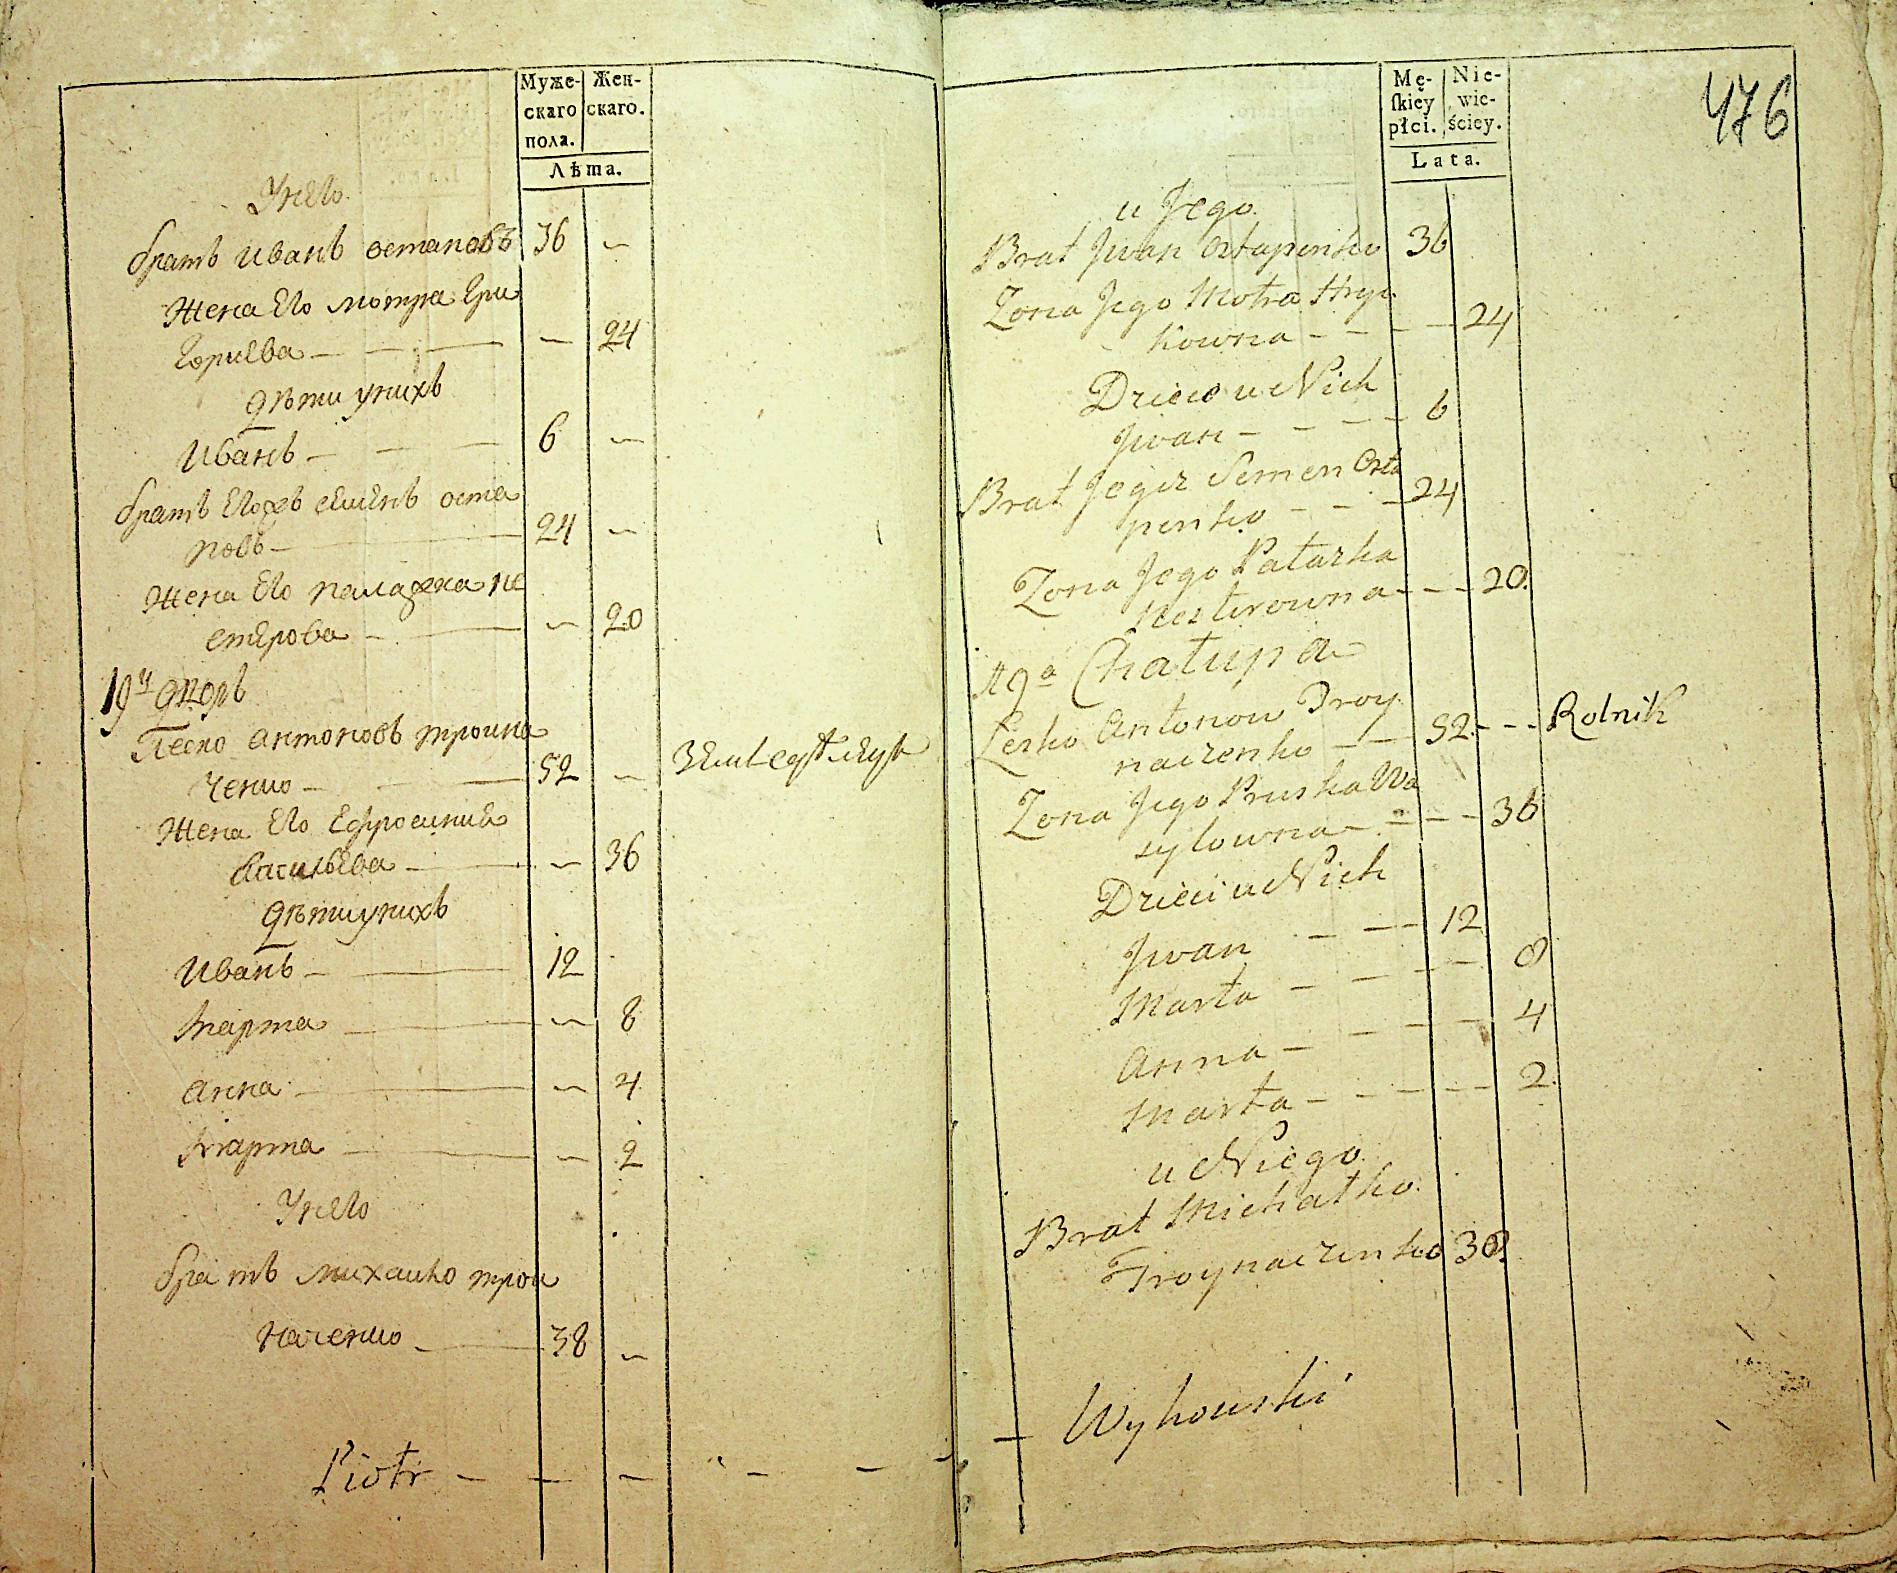 Муже- Жен-
скаго скаго.
пола.
Лѣта.
У него
братъ иванъ остаповъ 36 —
Жена Его мотра Гри
гориева — — — — 24
Дѣти у нихъ
Иванъ — — — 6 —
братъ Егожъ семенъ оста
повъ — 24 —
Жена Его палажка не
стерова — — — 20
19й дворъ
Леско антоновъ троина
ченко — — 52 — Земледѣлецъ
Жена Его Ефросиния
васильева — — — 36
Дѣти у нихъ
Иванъ — — 12
Марта — — 8
анна — — 4
Марта — — 2
У него
братъ михайло трои
наченко — 38 —
Piotr — — — — —
476
Mę- Nie-
skiey wie-
płci. ściey.
Lata.
u Jego
Brat Jwan Ostapenko 36
Zona Jego Motra Hry
kowna — — — 24
Dzieci u Nich
Jwan — — — — 6
Brat Jegoz Semen Osta
penko — — — 24
Zona Jego Pałazka
Nesterowna — — — 20.
19a Chałupa
Lesko Antonow Troy
naczenko — — 52 — — — Rolnik
Zona Jego Pruska Wa
sylowna — — — — 36
Dzieci u Nich
Jwan — — — 12
Marta — — — — 8
Anna — — — — 4
Marta — — — — — 2.
u Niego
Brat Michałko
Troynaczenko 38.
— Wyhowski